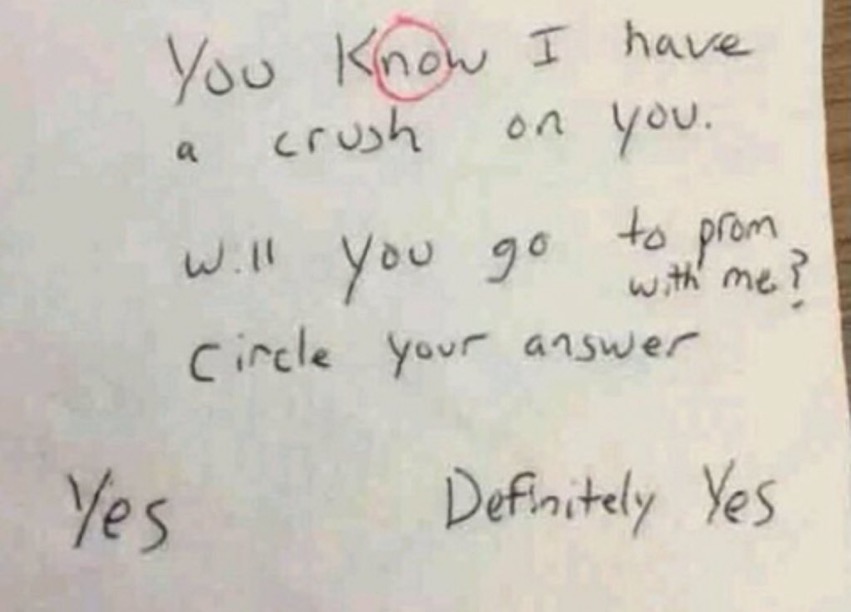 You Know I have
a crush on you.
Will you go to prom
with me?
Circle your answer
Yes Definitely Yes